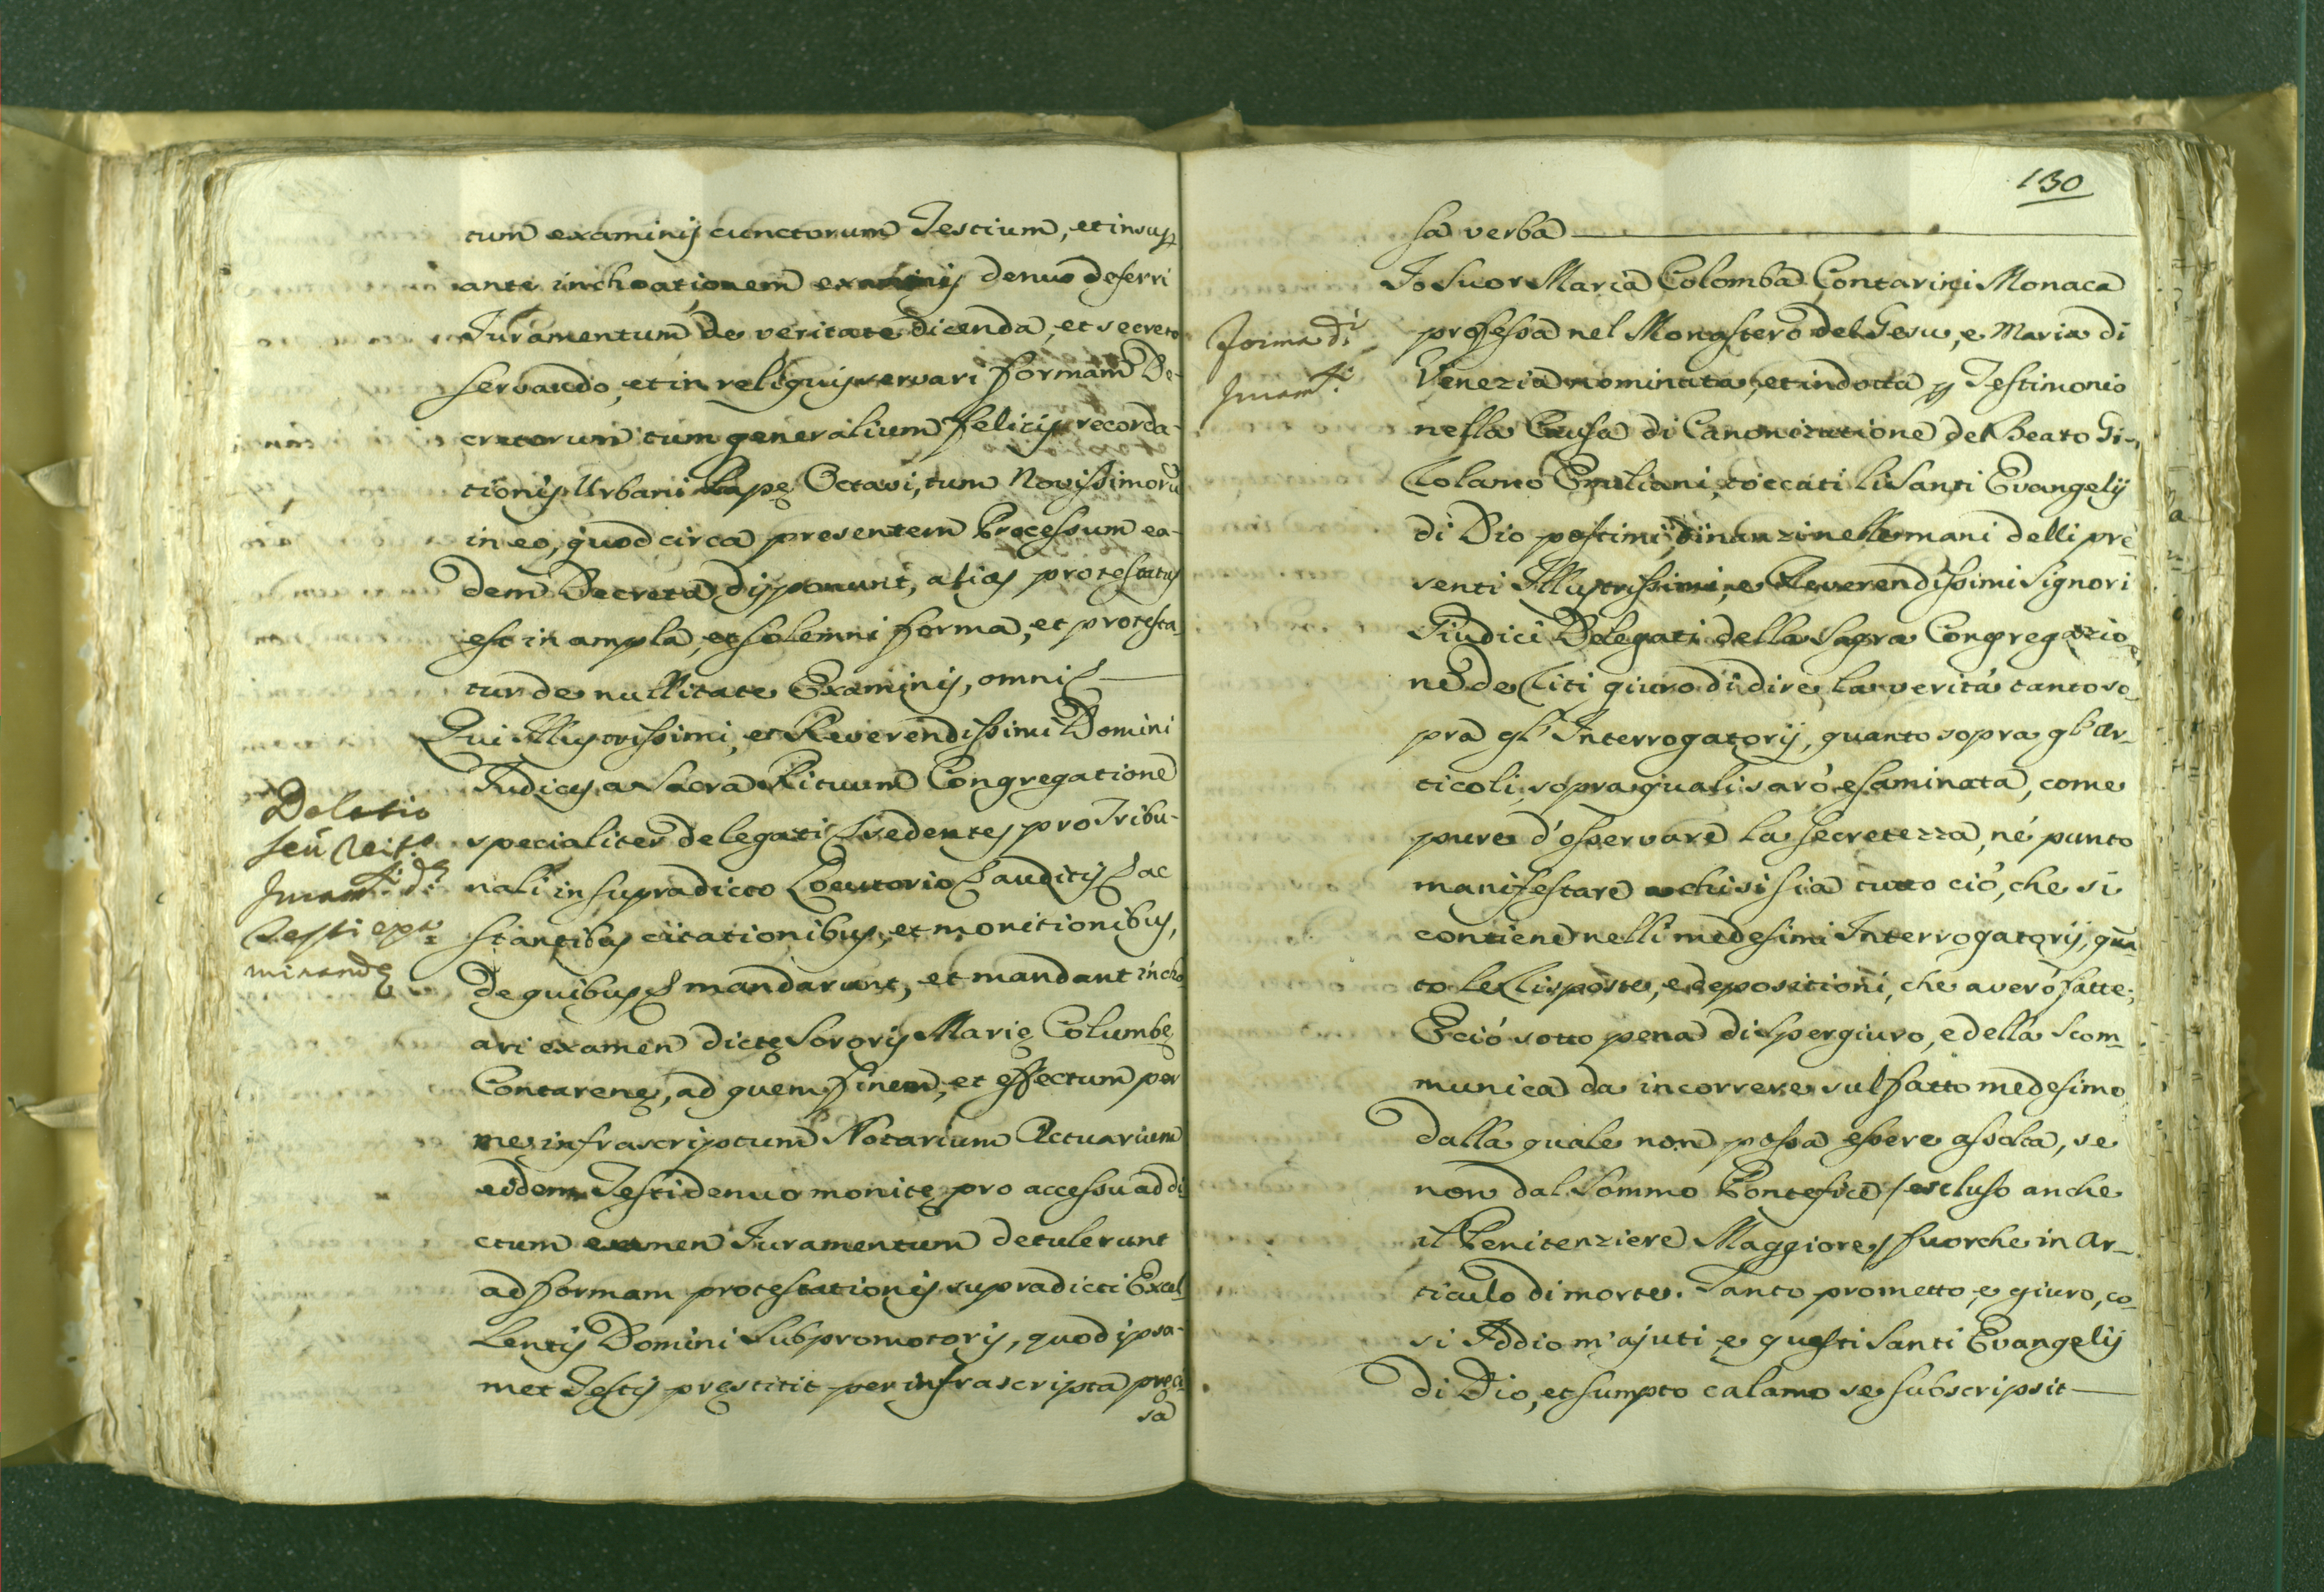 tum examinis cunctorum Testium, et insup
ante inchoationem examinis denuo deferri
Iuramentum de veritate dicenda, et secreto
servando, et in reliquis servari formam De-
cretorum tum generalium felicis recorda-
tionis Urbani Papę Octavi, tum Novissimorũ
in eo, quod circa presentem Processum ea-
dem Decreta disponunt, alias protestatus
est in ampla, et solemni forma, et protesta-
tur de nullitate Examinis, omni
Qui Illustrissimi, et Reverendissimi Domini
Iudices a Sacra Rituum Congregatione
specialiter delegati sedentes pro Tribu-
nali in supradicto Locutorio auditis ac
stantibus citationibus, et monitionibus,
de quibus mandarunt, et mandant incho
ari examen dictę Sororis Marię Columbę
Contarenę, ad quem finem, et effectum per
me infrascriptum Notarium Actuarium
eidem Testi denuo monitę pro accessu ad di
ctum examen Iuramentum detulerunt
ad formam protestationis supradicti Excel
lentis Domini Subpromotoris, quod ipsa-
met Testis pręstitit per infrascripta preci
sa
Delatio
seu
Juram.ti d.
Testi
minandę
130
sa verba
Io Suor Maria Colomba Contarini Monaca
professa nel Monastero del Gesu, e Maria di
Venezia nominata, et indotta p Testimonio
nella Causa di Canonizatione del Beato Gi-
rolamo Emiliani, toccati li Santi Evangelij
di Dio postimi dinanzi nelle mani delli pre
senti Illustrissimi, e Reverendissimi Signori
Giudici Delegati della Sagra Congregazio
ne de Riti giuro di dire la verità tanto so
pra gl' Interrogatorij, quanto sopra gl' Ar-
ticoli, sopra quali sarò esaminata, come
pure d'osservare la secretezza, nè punto
manifestare a chi si sia tutto ciò, che si
contiene nelli medesimi Interrogatorij, quã
to le Risposte, e depositioni, che averò fatte;
E ciò sotto pena di Spergiuro, e della Scom-
munica da incorrere sul fatto medesimo
dalla quale non possa essere assolta, se
non dal Sommo Pontefice / escluso anche
il Penitenziere Maggiore / fuorche in Ar-
ticulo di morte. Tanto prometto, e giuro, co-
si Iddio m'ajuti, e questi Santi Evangelij
di Dio, et sumpto calamo se subscripsit
Forma di
Juram.ti